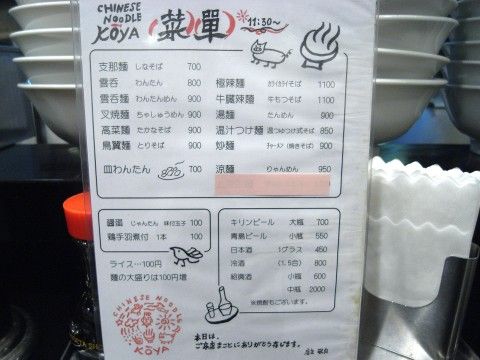 CHINESE NOODLE KOYA 菜單 11:30~
支那麺 しなそば 700
雲呑 わんたん 800
雲呑麺 わんたんめん 900
叉焼麺 ちゃしゅうめん 900
高菜麺 たかなそば 900
鳥翼麺 とりそば 900
皿わんたん 700
極辣麺 カライカライそば 1100
牛臓辣麺 牛もつそば 1100
湯麺 たんめん 900
温汁つけ麺 温つゆつけ式そば 850
炒麺 チャーメン(焼きそば) 900
涼麺 りゃんめん 950
醤湯 じゃんたん 味付玉子 100
鶏手羽煮付 1本 100
ライス…100円
麺の大盛りは100円増
キリンビール 大瓶 700
青島ビール 小瓶 550
日本酒 1グラス 450
冷酒 (1.5合) 800
紹興酒 小瓶 600
中瓶 2000
※焼酎もございます。
CHINESE NOODLE KOYA
本日は、
ご来店まことにありがとう存じます。
店主